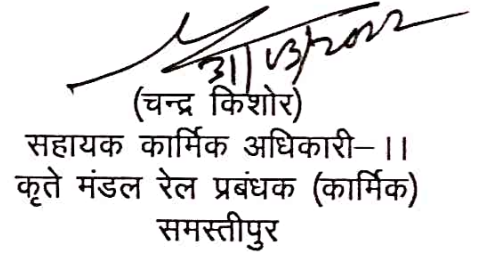 (चन्द्र किशोर)
सहायक कार्मिक अधिकारी–।।
कृते मंडल रेल प्रबंधक (कार्मिक)
समस्तीपुर